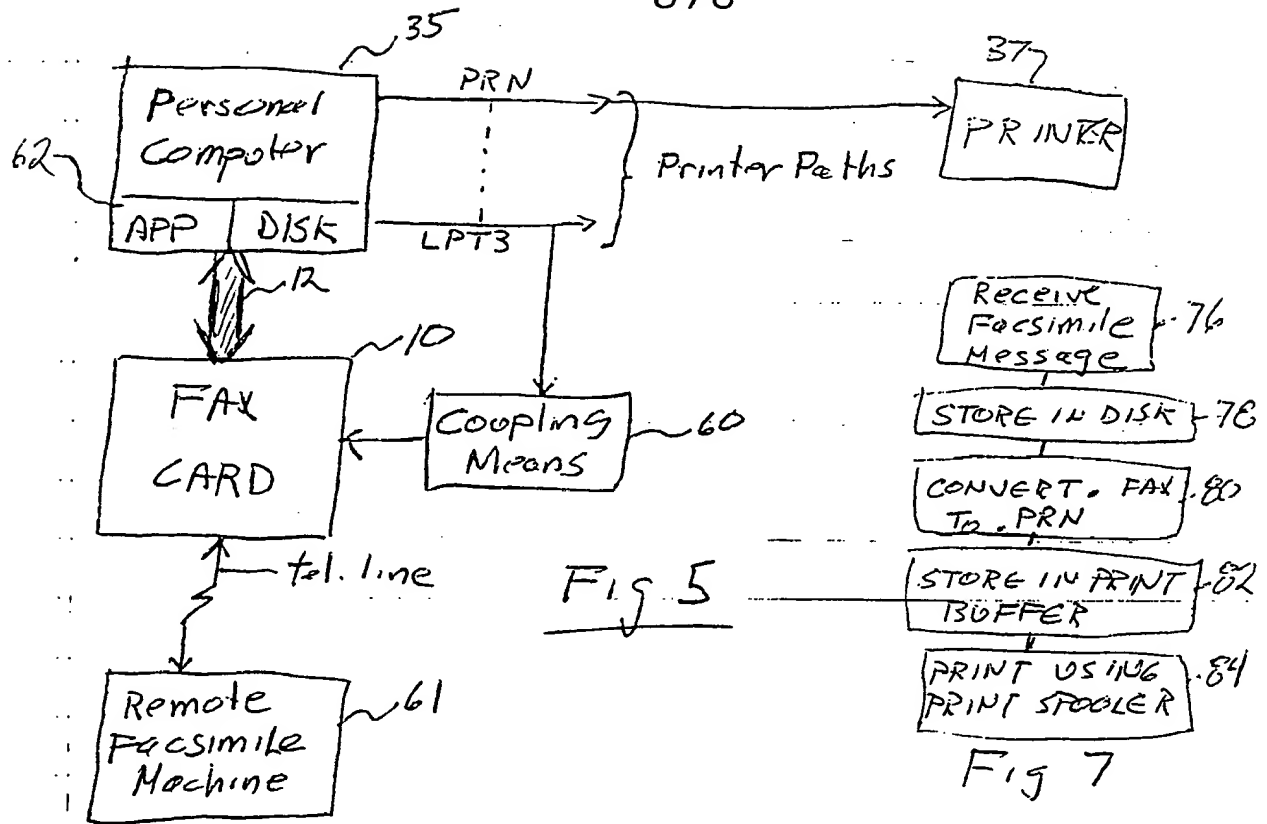 35
Personal
Computer
62
APP DISK
PRN
LPT3
Printer Paths
37
PRINTER
12
10
FAX
CARD
Coupling
Means
60
tel. line
Remote
Facsimile
Machine
61
Fig 5
Receive
Facsimile
Message
76
STORE IN DISK
78
CONVERT . FAX
TO . PRN
80
STORE IN PRINT
BUFFER
82
PRINT USING
PRINT SPOOLER
84
Fig 7